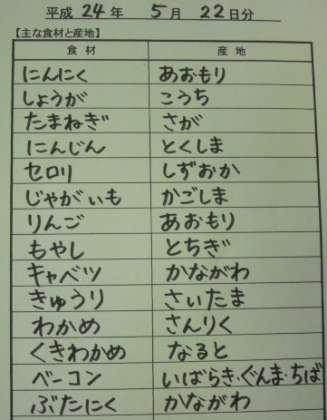 平成 24年 5月 22日分
【主な食材と産地】
食材 産地
にんにく あおもり
しょうが こうち
たまねぎ さが
にんじん とくしま
セロリ しずおか
じゃがいも かごしま
りんご あおもり
もやし とちぎ
キャベツ かながわ
きゅうり さいたま
わかめ さんりく
くきわかめ なると
ベーコン いばらき・ぐんま・ちば
ぶたにく かながわ